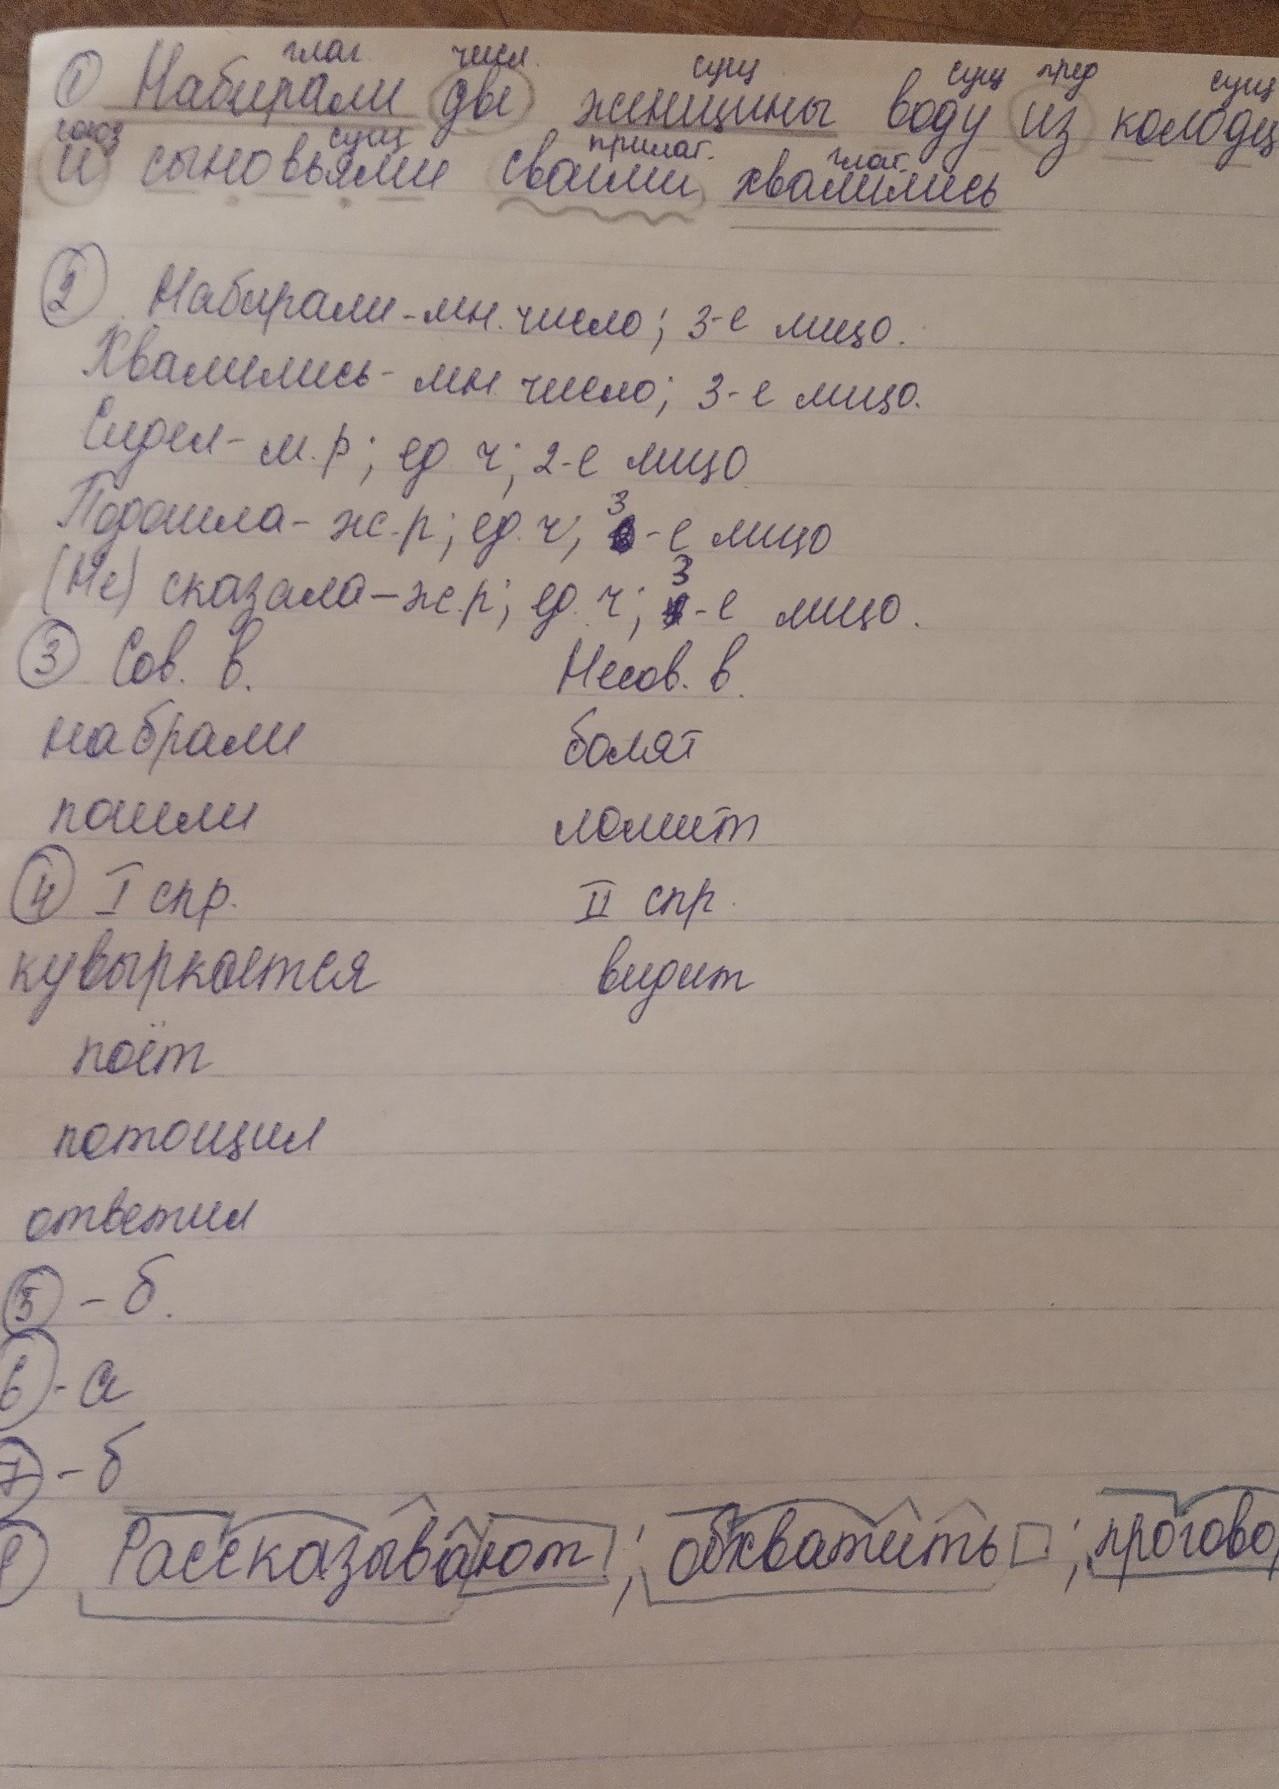 глаг числ. сущ сущ пред сущ
① Набирали две женщины воду из колодц
союз сущ прилаг. глаг.
и сыновьями своими хвалились
② Набирали - мн. число; 3-е лицо.
Хвалились - мн. число; 3-е лицо.
Сидел - м.р; ед. ч; 2-е лицо
Подошла - ж.р; ед. ч; 3-е лицо
(Не) сказала - ж.р; ед. ч; 3-е лицо.
③ Сов. в. Несов. в.
набрали болят
пошли ломит
④ I спр. II спр.
кувыркается видит
поёт
потощил
ответил
⑤ - б.
6 - а
7 - б
Рассказывают; обхватить; прогово